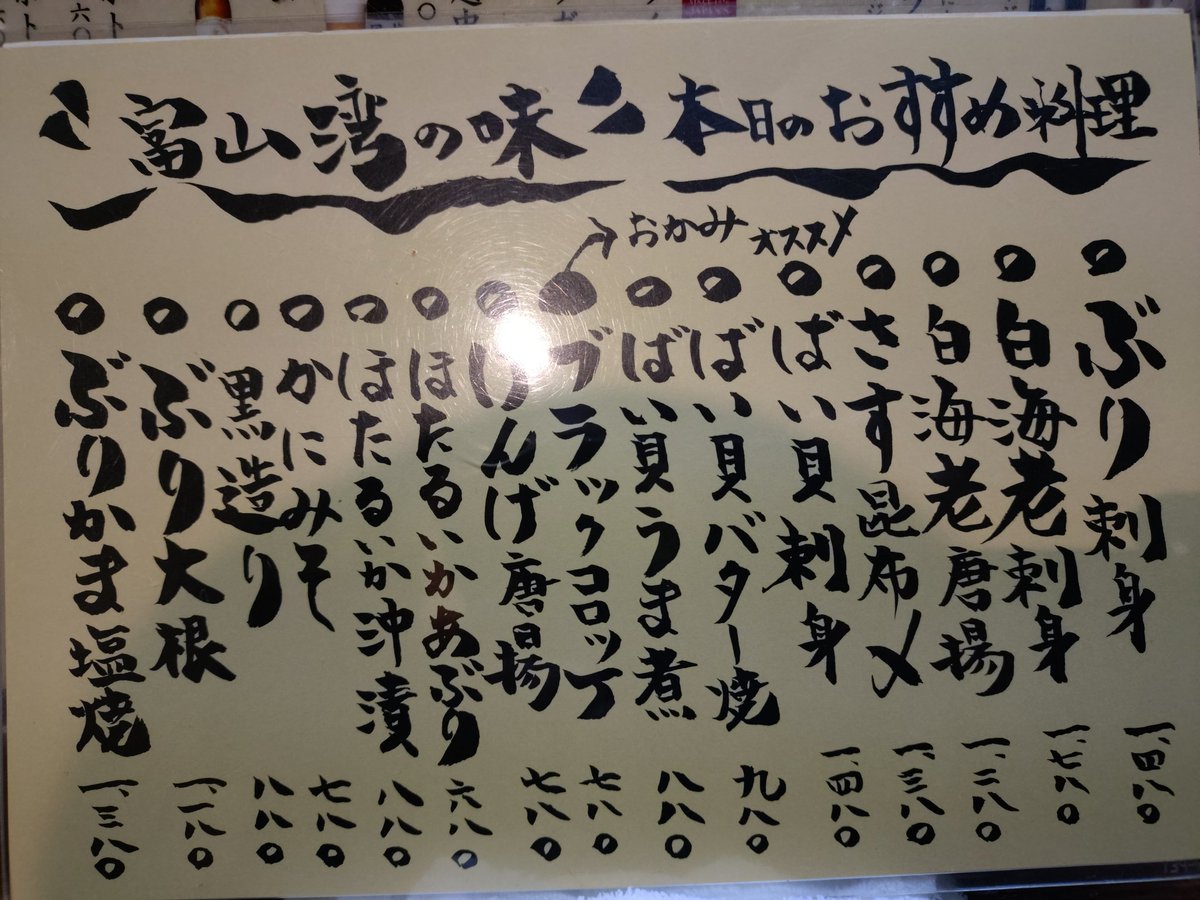 本日のおすすめ料理
富山湾の味
おかみオススメ
ぶり刺身 一、四八〇
白海老刺身 一、七八〇
白海老唐揚 一、二八〇
さす昆布〆 一、三八〇
ばい貝刺身 一、四八〇
ばい貝バター焼 九八〇
ばい貝うま煮 八八〇
ブラックコロッケ 七八〇
げんげ唐揚 七八〇
ほたるいかあぶり 六八〇
ほたるいか沖漬 八八〇
かにみそ 七八〇
黒造り 八八〇
ぶり大根 一、一八〇
ぶりかま塩焼 一、三八〇